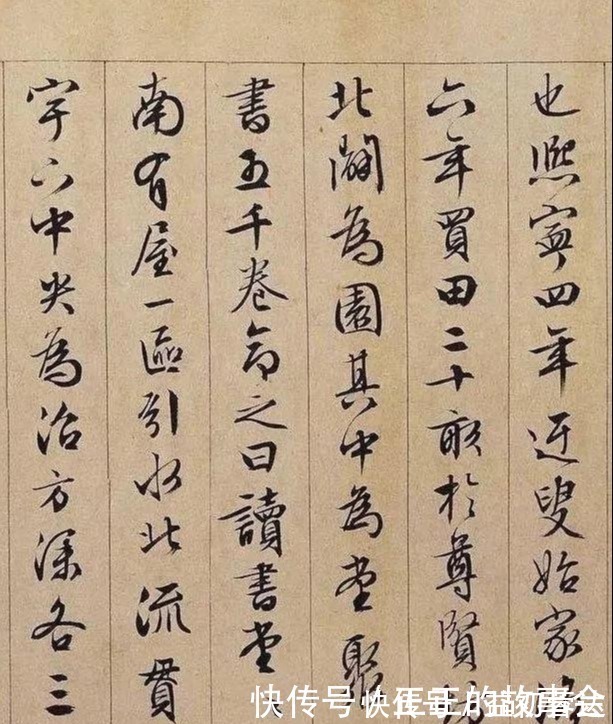 也熙寧四年迂叟始家
六年買田二十畝於尊賢
北闢為園其中為堂聚
書五千卷命之曰讀書堂
南有屋一區引水北流貫
宇下中央為沼方深各三
快传号
快传号
的故事会